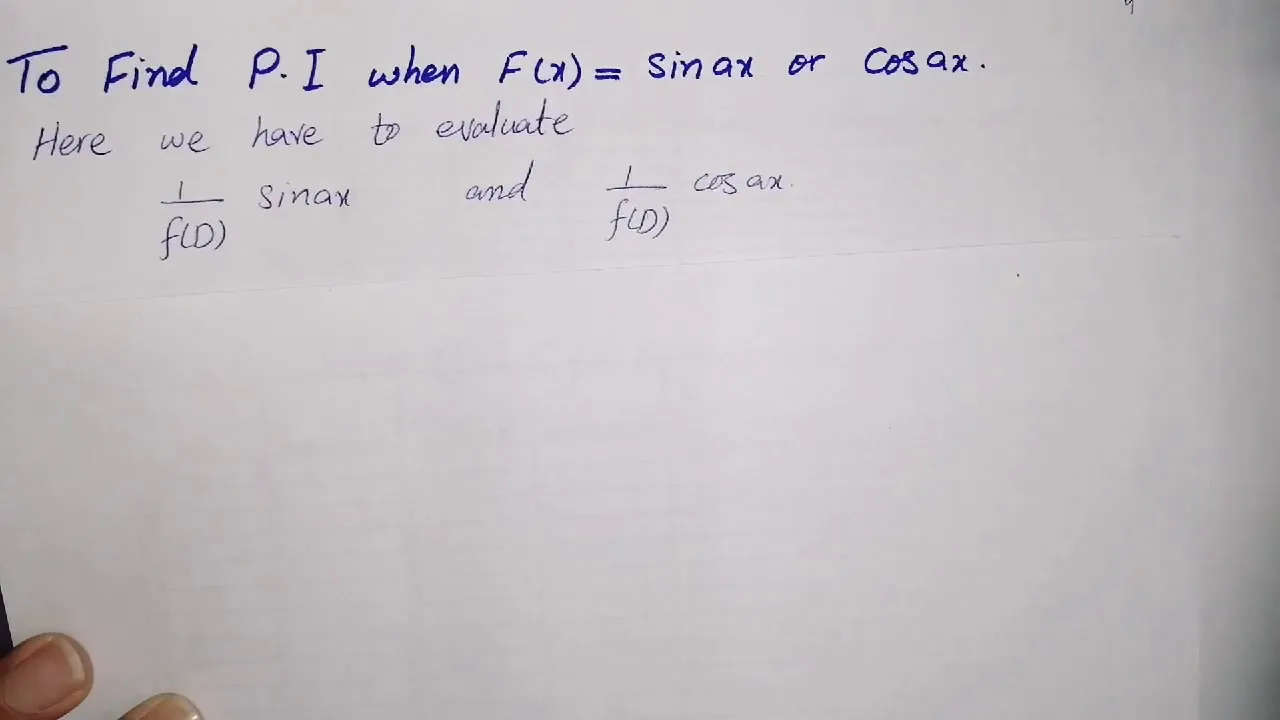 To Find P.I when F(x) = sin ax or cos ax.
Here we have to evaluate
1/f(D) sinax and 1/f(D) cos ax.